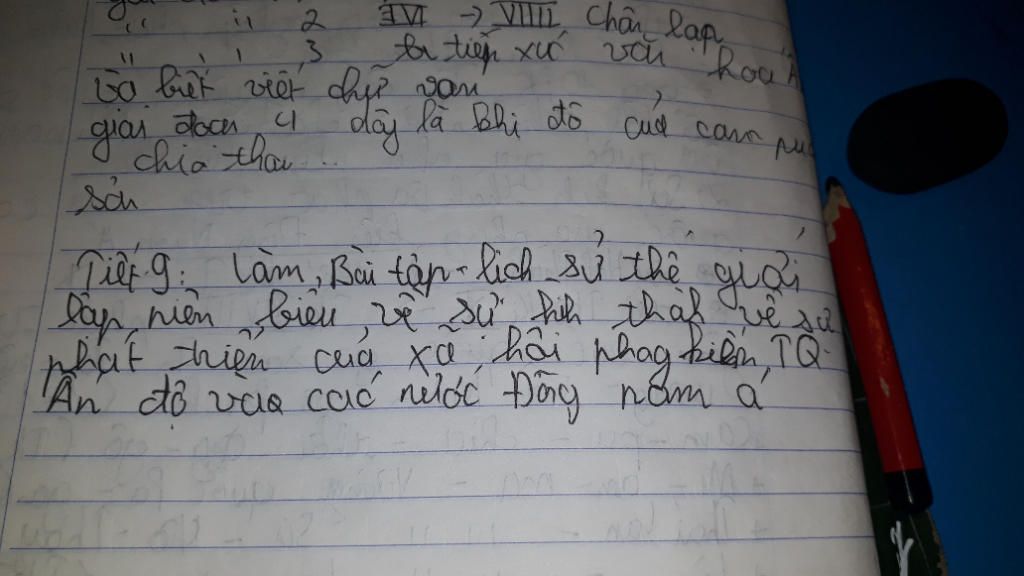 giai
" " 2 IVI → VIIII chân lạp
" " 3 tr tiếp xứ văn hoá
và biết viết chữ vạn
giai đoan 4 đây là khi đô của cam pu
chia thai ...
sản
Tiết 9: làm Bài tập lịch sử thế giới
lập niên biểu về sự hìh thàh về sự
phát triển của xã hội phog kiến TQ.
Ấn độ vàa các nước Đông nam á